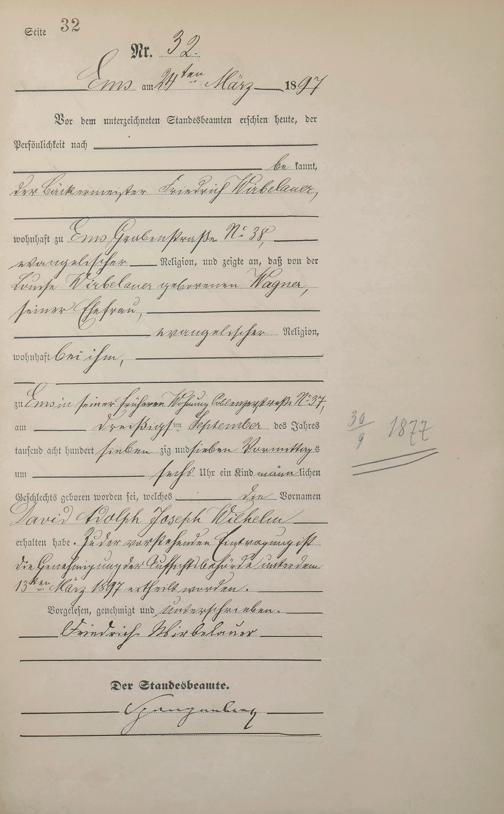 Seite 32
Nr. 32.
Ems am 24ten März 1897
Vor dem unterzeichneten Standesbeamten erschien heute, der
Persönlichkeit nach
be kannt,
der Bäckermeister Friedrich Wirbelauer,
wohnhaft zu Ems, Grabenstraße No 38,
evangelischer Religion, und zeigte an, daß von der
Louise Wirbelauer geborenen Wagner,
seiner Ehefrau,
evangelischer Religion,
wohnhaft bei ihm,
zu Ems in seiner früheren Wohnung Coblenzerstraße No 37,
am dreißigsten September des Jahres
tausend acht hundert sieben zig und sieben Vormittag s
um sechs Uhr ein Kind männ lichen
Geschlechts geboren worden sei, welches die Vornamen
David Adolph Joseph Wilhelm
erhalten habe. Zu der vorstehenden Eintragung ist
die Genehmigung der Aufsichtsbehörde unter dem
13ten März 1897 ertheilt worden.
Vorgelesen, genehmigt und unterschrieben.
Friedrich Wirbelauer
Der Standesbeamte.
30/9 1877